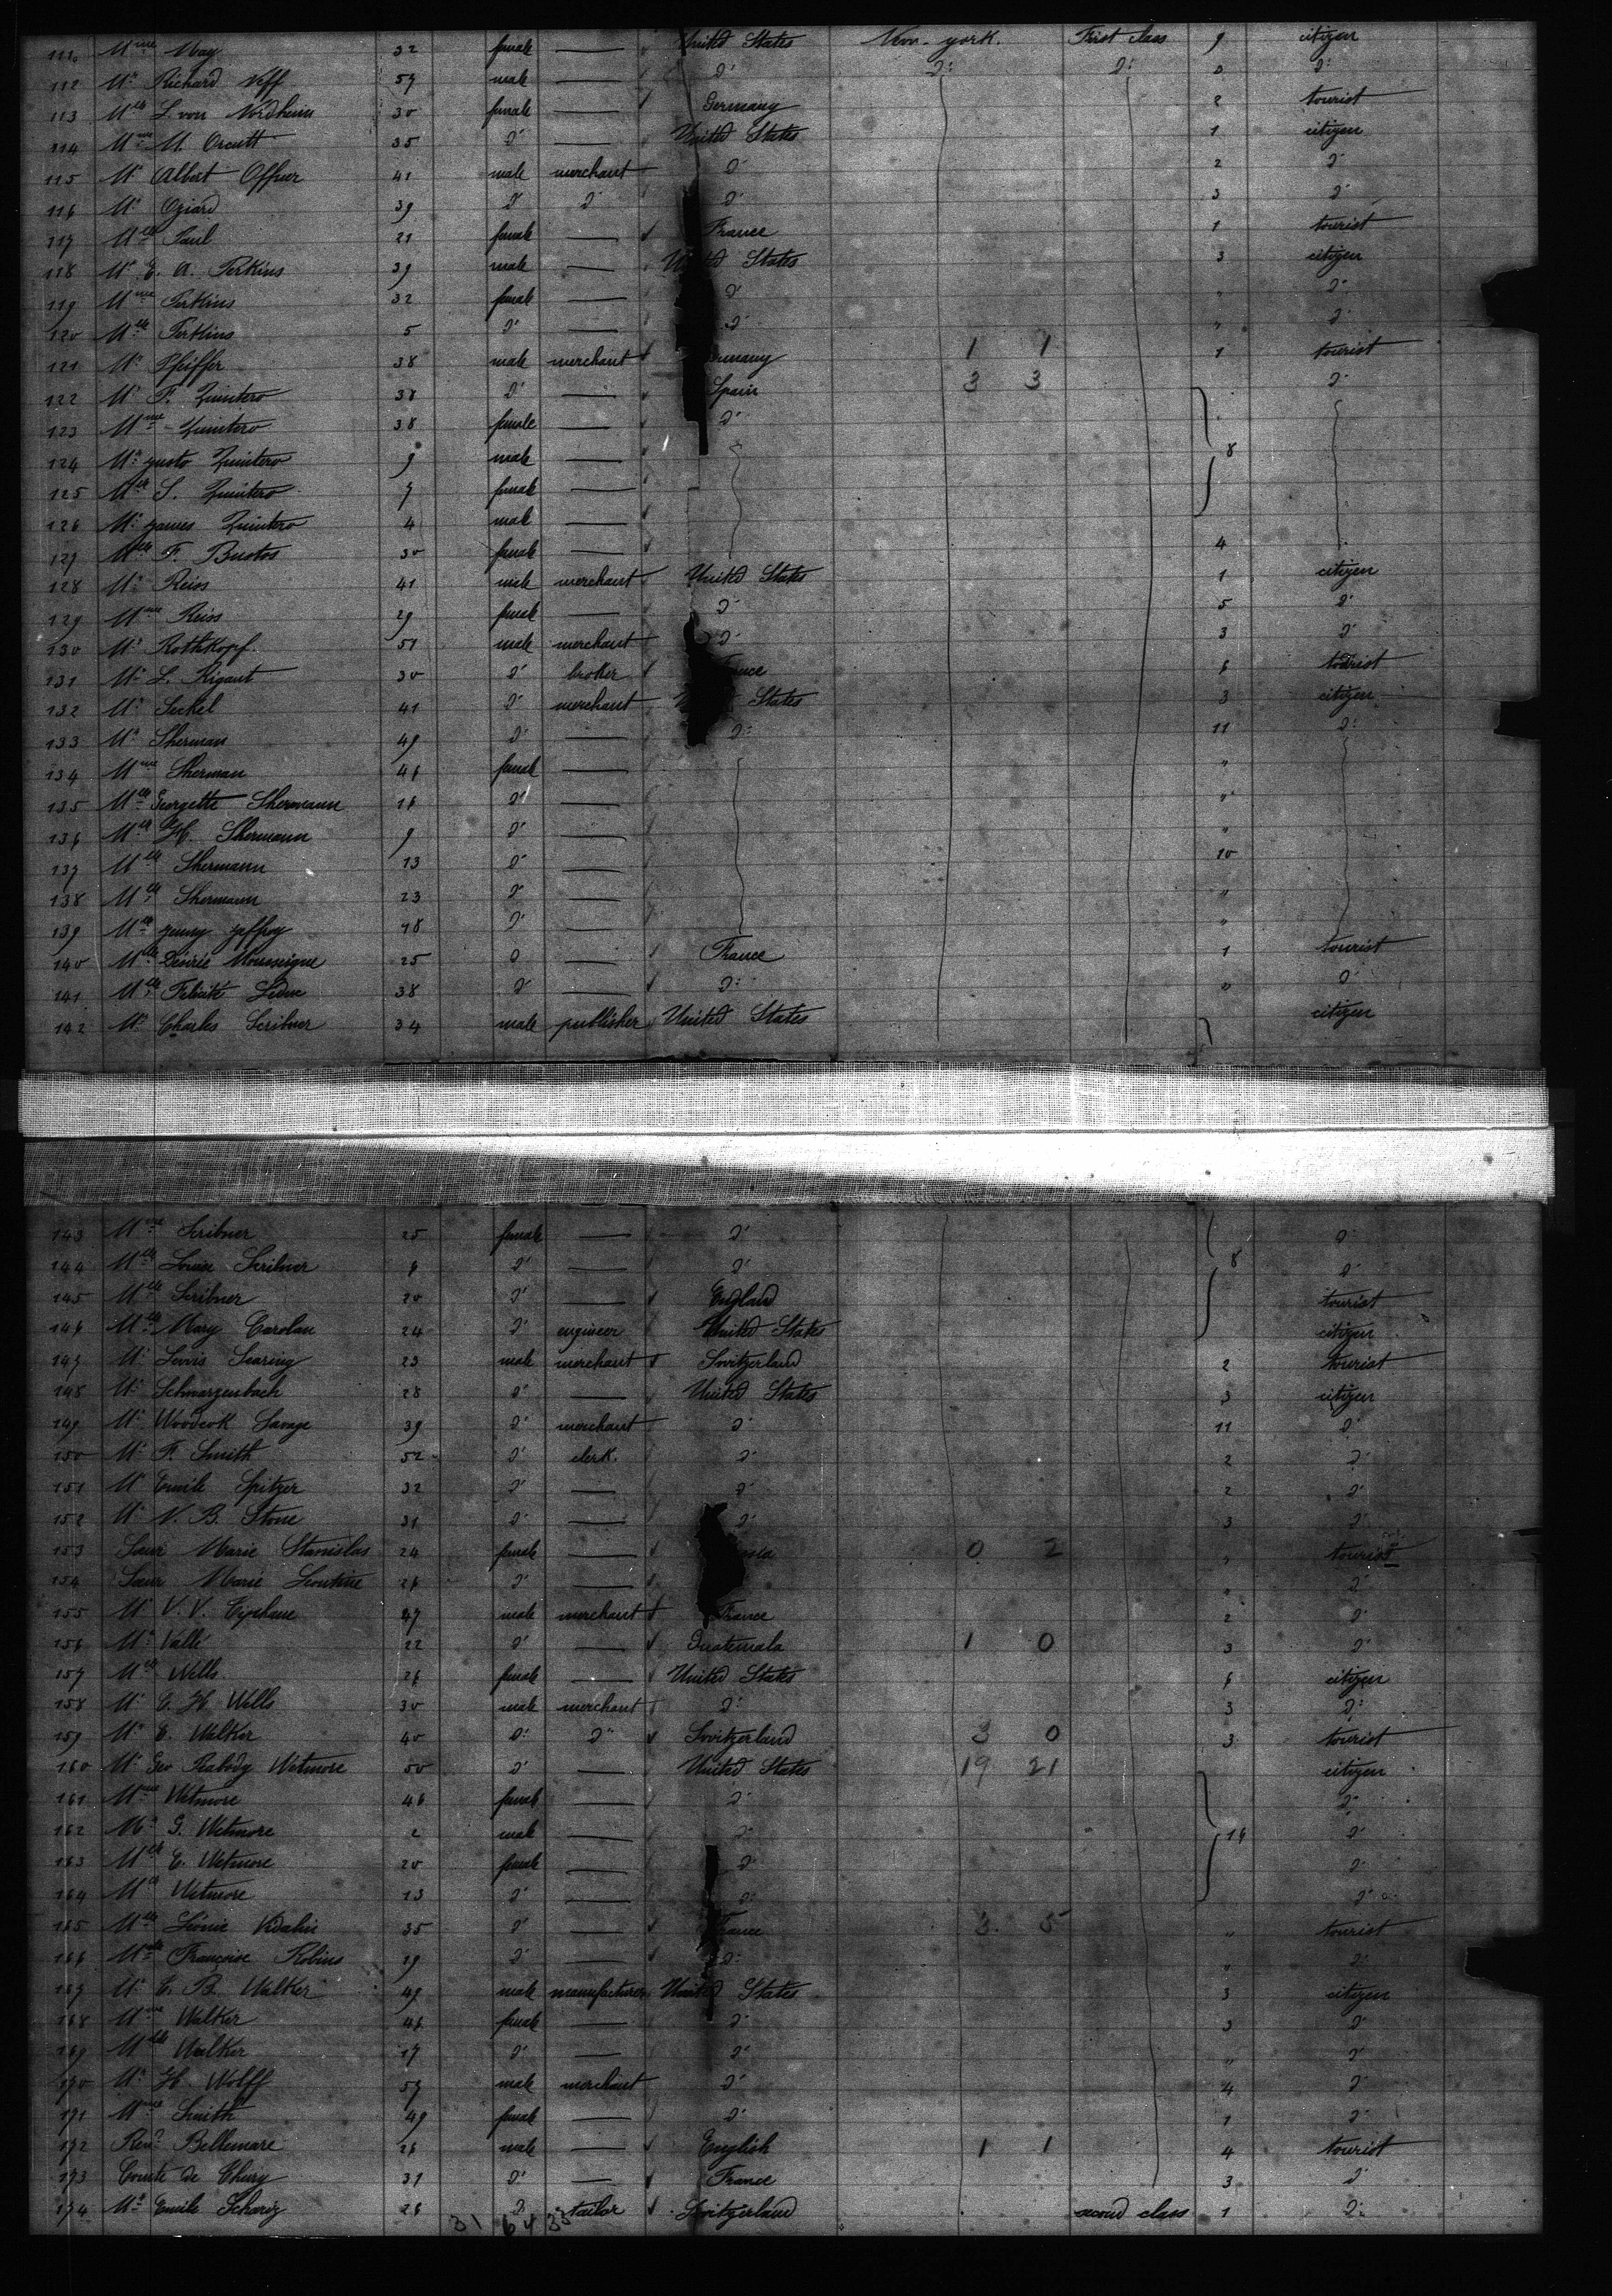 111 Mme May 32 female — United States New-york. First class 9 citizen
112 Mr Richard Neff 57 male — d° d° d° 2 d°
113 Mlle L. von Nordheim 30 female — Germany 2 tourist
114 Mme M. Orcutt 35 d° — United States 1 citizen
115 Mr Albert Offner 41 male merchant d° 2 d°
116 Mr Oziard 39 d° d° d° 3 d°
117 Mlle Paul 21 female — France 1 tourist
118 Mr E. A. Perkins 39 male — United States 3 citizen
119 Mme Perkins 32 female — d° " d°
120 Mlle Perkins 5 d° — d° " d°
121 Mr Pfeiffer 38 male merchant Germany 1 1 1 tourist
122 Mr F. Quintero 38 d° — Spain 3 3 d°
123 Mme Quintero 38 female — d°
124 Mr gusto Quintero 9 male — 8
125 Mlle S. Quintero 7 female —
126 Mr james Quintero 4 male —
127 Mlle F. Bustos 30 female — 4
128 Mr Reiss 41 male merchant United States 1 citizen
129 Mme Reiss 29 female — d° 5 d°
130 Mr Rothkopf. 51 male merchant d° 3 d°
131 Mr L. Rigaut 30 d° broker France 6 tourist
132 Mr Seckel 41 d° merchant States 3 citizen
133 Mr Sherman 49 d° — d° 11 d°
134 Mme Sherman 46 female — "
135 Mlle Georgette Shermann 16 d° — "
136 Mlle H. Shermann 9 d° — "
137 Mlle Shermann 13 d° — 10
138 Mlle Shermann 23 d° — "
139 Mlle jenny jeffroy 48 d° — "
140 Mlle Désirée Mouseigne 25 d° — France 1 tourist
141 Mlle Félicité Leduc 38 d° — d° " d°
142 Mr Charles Scribner 34 male publisher United States citizen
143 Mme Scribner 25 female — d° d°
144 Mlle Louise Scribner 6 d° — d° 8 d°
145 Mlle Scribner 20 d° — England tourist
146 Mlle Mary Carolan 24 d° engineer United States citizen
147 Mr Lewis Searing 23 male merchant Switzerland 2 tourist
148 Mr Schwarzenbach 28 d° — United States 3 citizen
149 Mr Woodcok Savage 39 d° merchant d° 11 d°
150 Mr F. Smith 52 d° clerk. d° 2 d°
151 Mr Emile Spitzer 32 d° — d° 2 d°
152 Mr N. B. Stone 31 d° — d° 3 d°
153 Sœur Marie Stanislas 24 female — 0 2 " tourist
154 Sœur Marie Léontine 26 d° — " d°
155 Mr V. V. 47 male merchant France 2 d°
156 Mr Vallé 22 d° — Guatemala 1 0 3 d°
157 Mlle Wells 26 female — United States 6 citizen
158 Mr E. H. Wells 30 male merchant d° 3 d°
159 Mr E. Walker 40 d° d° Switzerland 3 0 3 tourist
160 Mr Geo Peabody Wetmore 50 d° — United States 19 21 citizen
161 Mme Wetmore 46 female — d° d°
162 Mr G. Wetmore 2 male — d° 16 d°
163 Mlle E. Wetmore 20 female — d° d°
164 Mlle Wetmore 13 d° — d° d°
165 Mlle Léonie Vidalin 35 d° — France 3 5 " tourist
166 Mlle Françoise Robins 29 d° — d° " d°
167 Mr E. B. Walker 49 male manufacturer United States 3 citizen
168 Mme Walker 46 female — d° 3 d°
169 Mlle Walker 17 d° — d° " d°
170 Mr H. Wolff 57 male merchant d° 4 d°
171 Mme Smith 49 female — d° 1 d°
172 Revd Bellemare 26 male — English 1 1 4 tourist
173 Comte de Chiry 31 d° — France 3 d°
174 Mr Emile Schorig 26 d° tailor Switzerland second class 1 d°
31 64 33